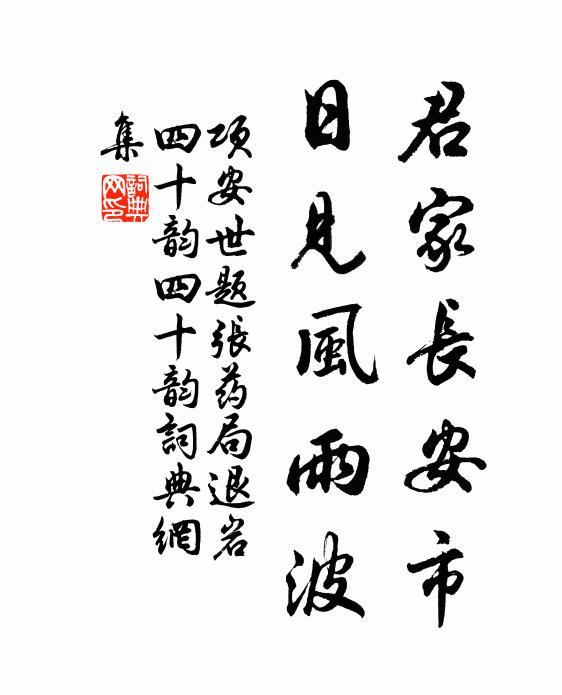 君家長安市
日見風雨波
项安世题張药局退岩
四十韵四十韵詞典網
集
詞典
网印